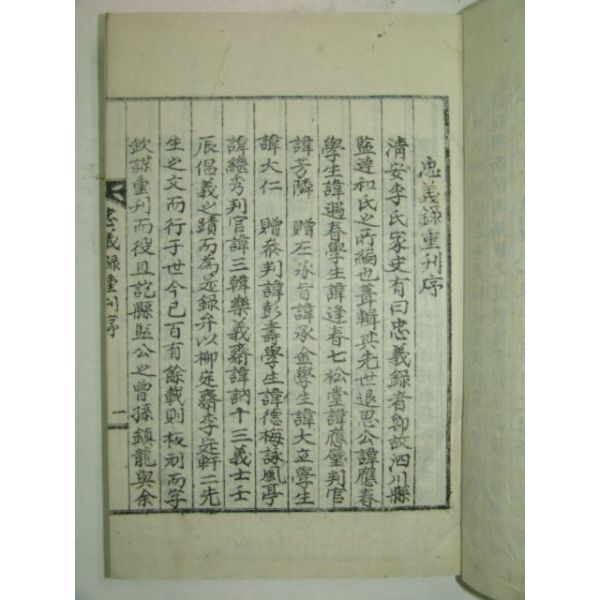 忠義錄重刊序
清安李氏家史有曰忠義錄者卽故泗川縣
監達和氏之所編也葺輯其先世退思公諱應春
學生諱遇春學生諱逢春七松堂諱應璧判官
諱芳隣 贈左承旨諱承金學生諱大立學生
諱大仁 贈參判諱彭壽學生諱德梅詠風亭
諱繼秀判官諱三韓樂義齋諱訥十三義士壬
辰倡義之蹟而為是錄弁以柳定齋李定軒二先
生之文而行于世今已百有餘載則板刓而字
缺謀重刊而役且訖縣監公之曾孫鎭龍與余
忠義錄重刊序
一